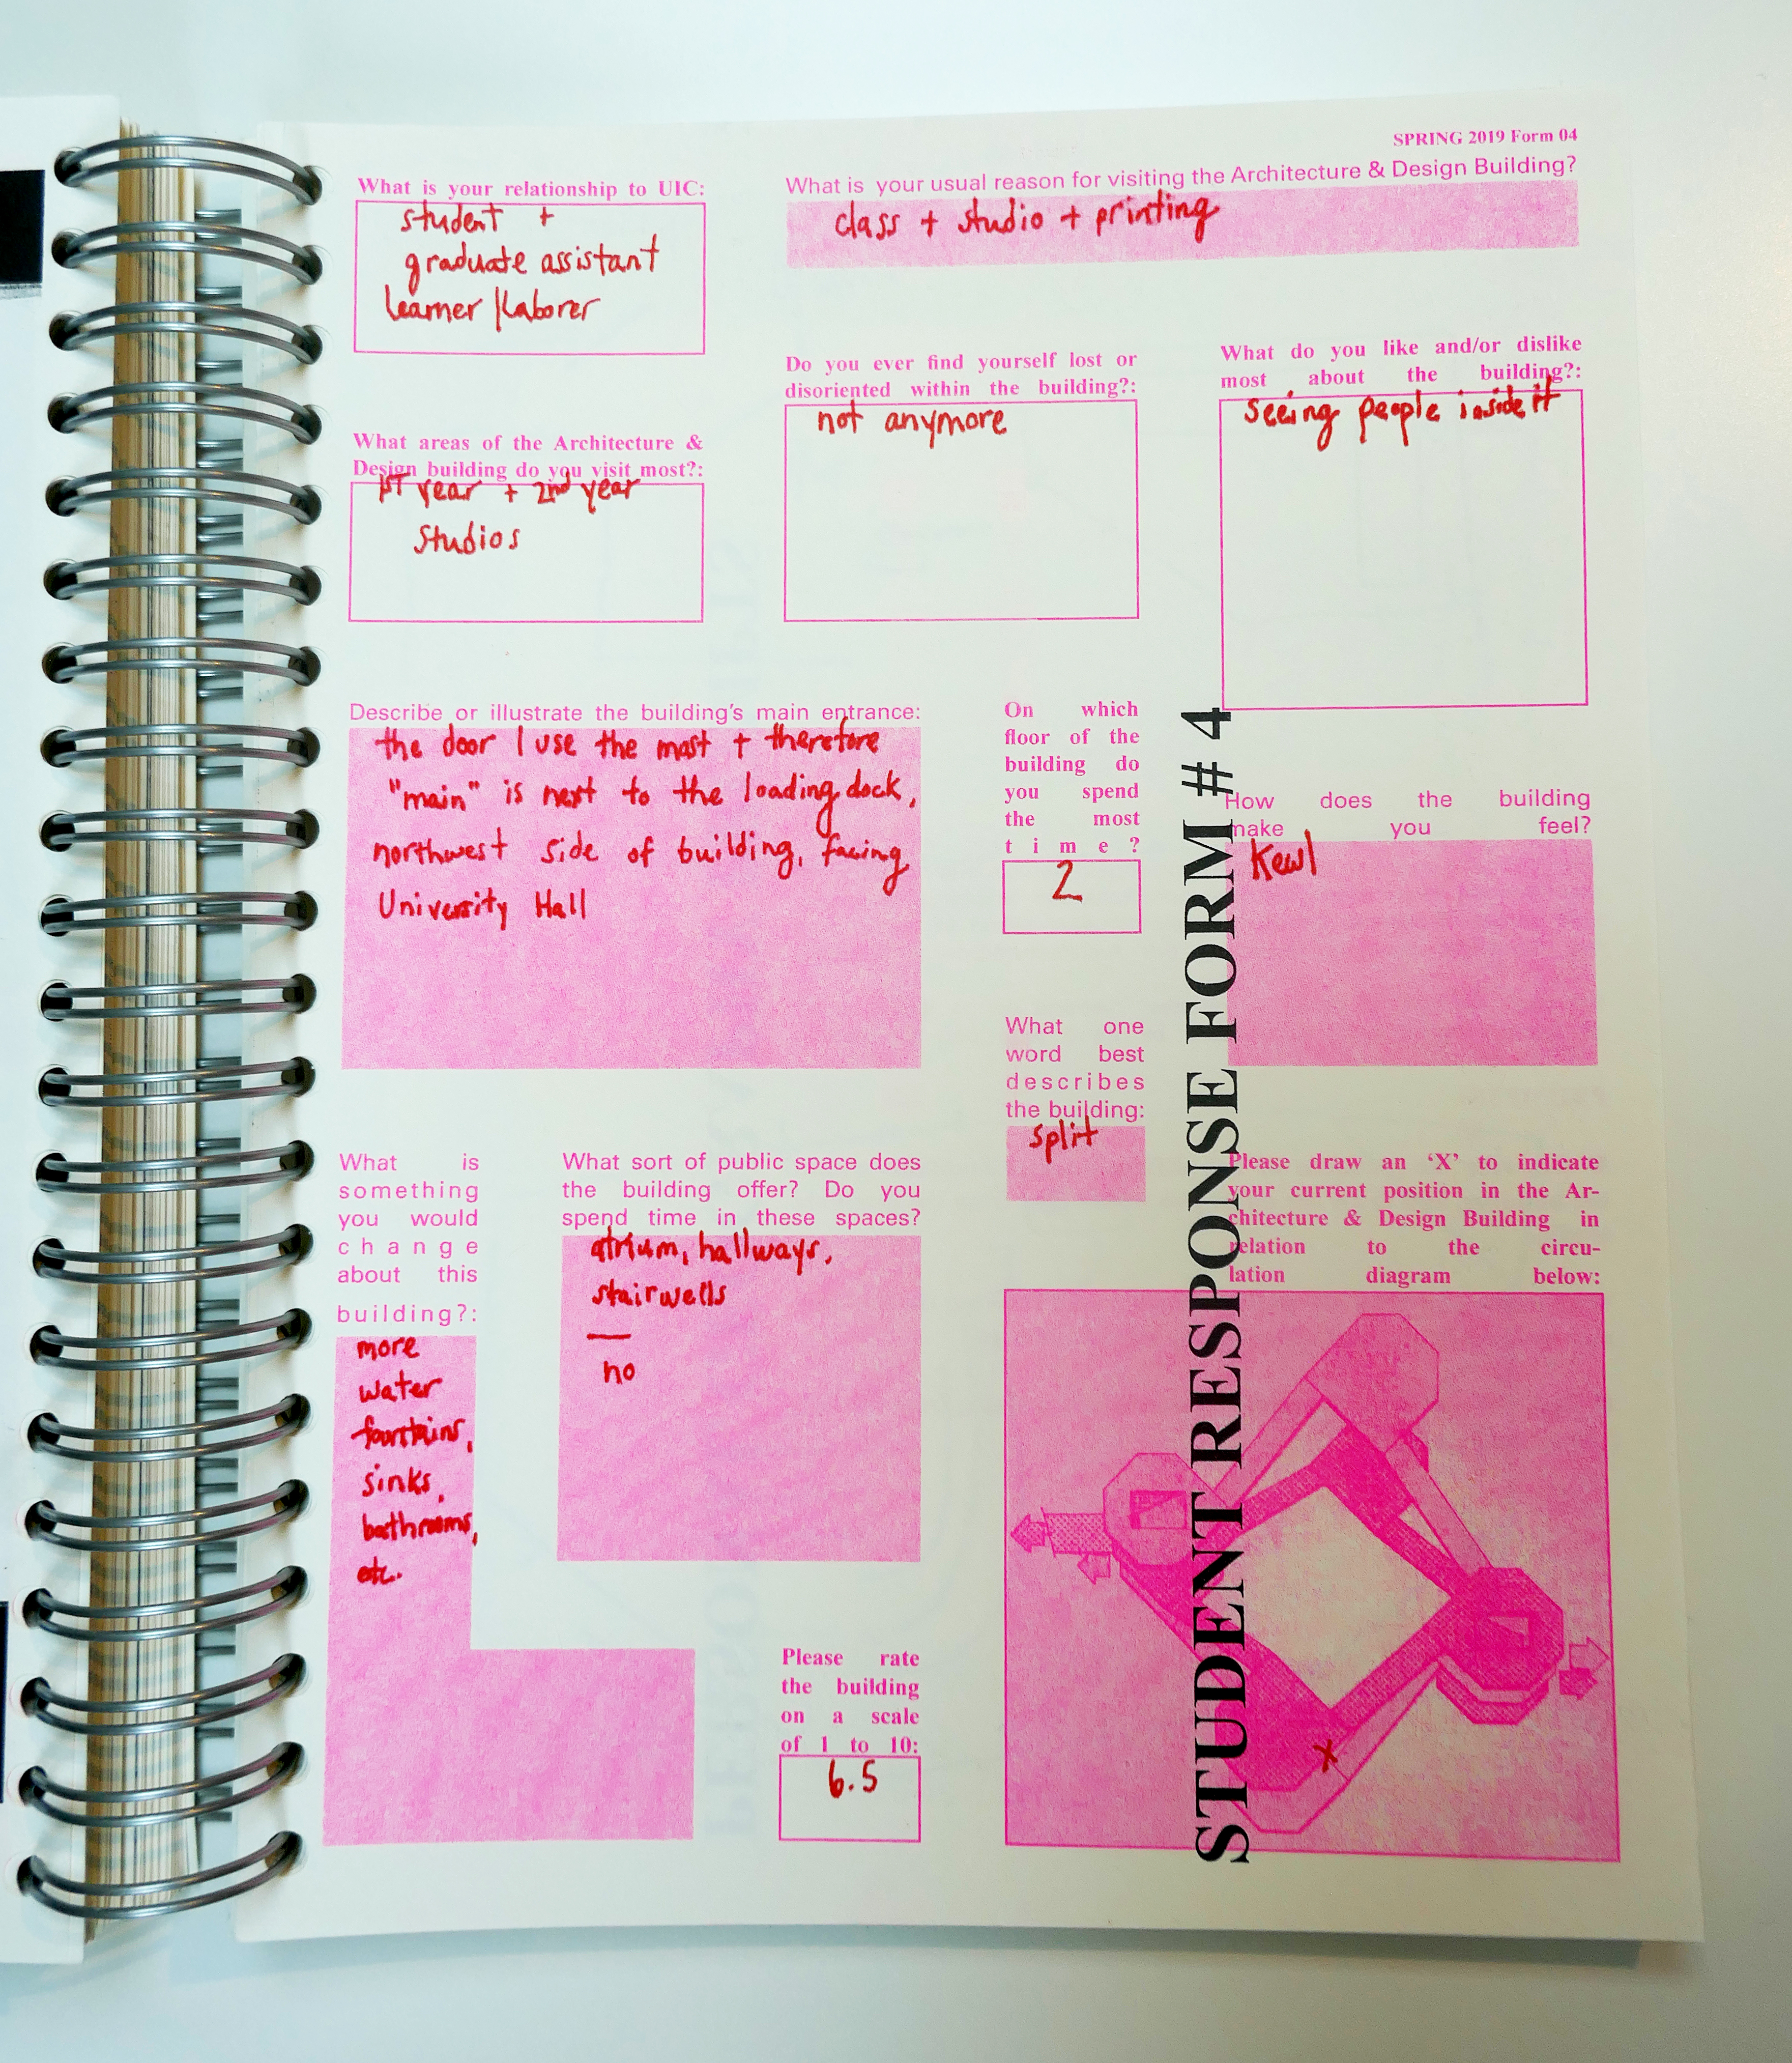 SPRING 2019 Form 04
What is your relationship to UIC:
student +
graduate assistant
learner/laborer
What is your usual reason for visiting the Architecture & Design Building?
class + studio + printing
What areas of the Architecture &
Design building do you visit most?:
1ST year + 2nd year
studios
Do you ever find yourself lost or
disoriented within the building?:
not anymore
What do you like and/or dislike
most about the building?:
seeing people inside it
Describe or illustrate the building's main entrance:
the door I use the most + therefore
"main" is next to the loading dock,
northwest side of building, facing
University Hall
On which
floor of the
building do
you spend
the most
time?
2
How does the building
make you feel?
Kewl
What one
word best
describes
the building:
split
What is
something
you would
change
about this
building?:
more
water
fountains,
sinks,
bathrooms,
etc.
What sort of public space does
the building offer? Do you
spend time in these spaces?
atrium, hallways,
stairwells
—
no
Please rate
the building
on a scale
of 1 to 10:
6.5
Please draw an ‘X’ to indicate
your current position in the Ar-
chitecture & Design Building in
relation to the circu-
lation diagram below:
X
STUDENT RESPONSE FORM # 4